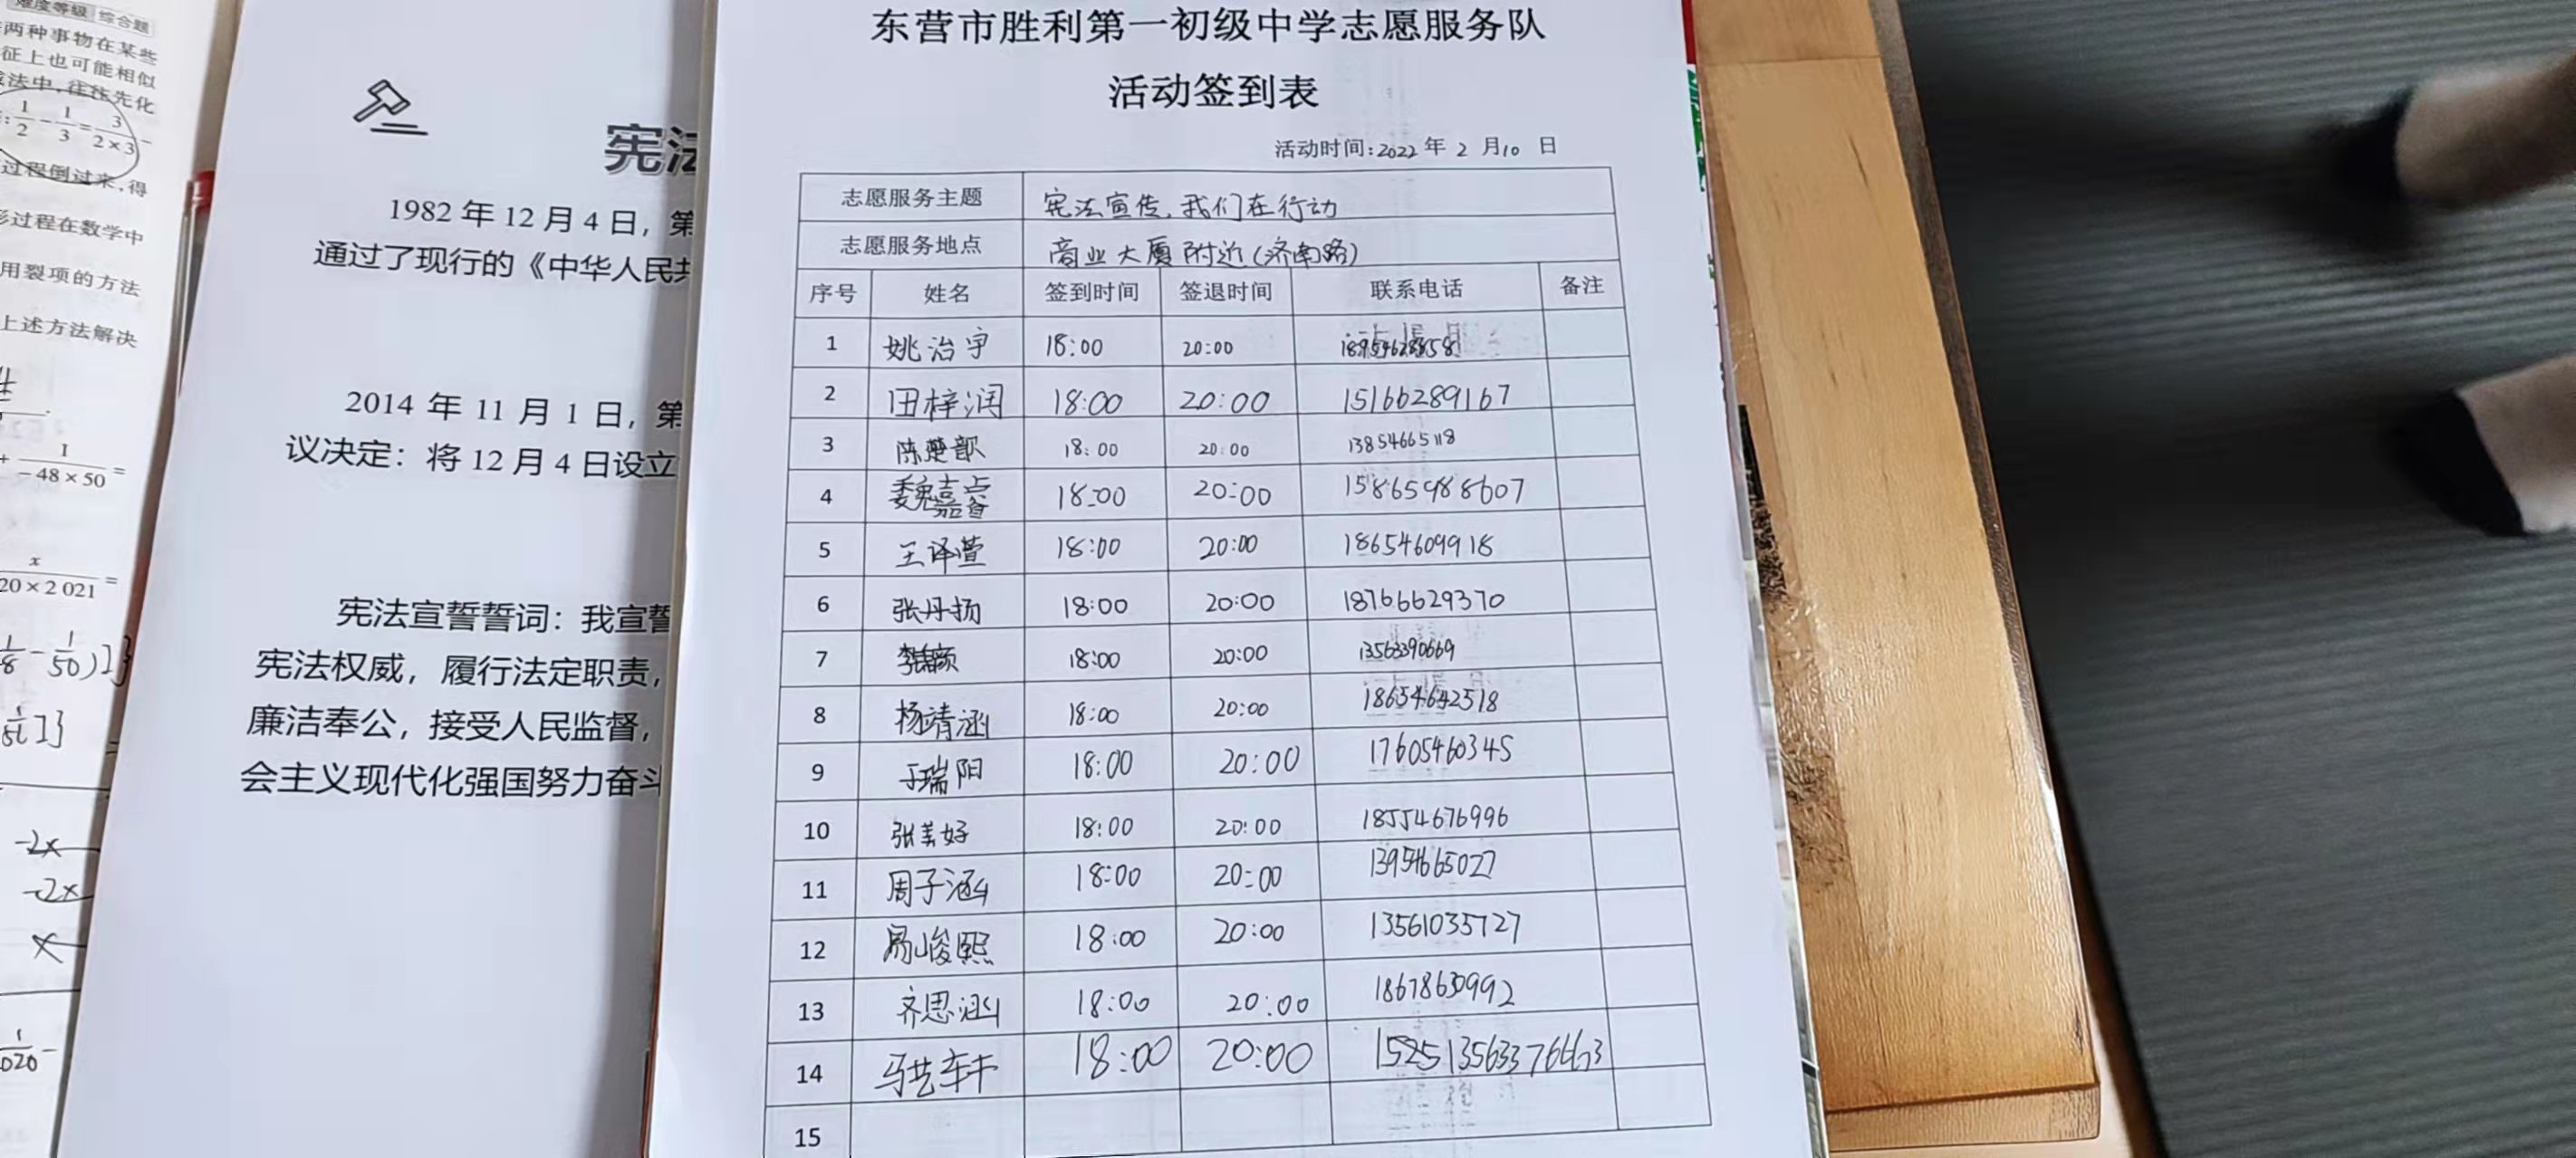 难度等级 综合题
两种事物在某些
征上也可能相似
法中,往往先化
1/2 - 1/3 = 3/2×3 -
过程倒过来,得
形过程在数学中
用裂项的方法
上述方法解决
+ 1/-48×50 =
x/20×2 021 =
1/8 - 1/50)]}
-2x
-2x
x
1/020 -
宪法
1982 年 12 月 4 日，第
通过了现行的《中华人民共
2014 年 11 月 1 日，第
议决定：将 12 月 4 日设立
宪法宣誓誓词：我宣誓
宪法权威，履行法定职责，
廉洁奉公，接受人民监督，
会主义现代化强国努力奋斗
东营市胜利第一初级中学志愿服务队
活动签到表
活动时间:2022 年 2 月10 日
志愿服务主题 宪法宣传,我们在行动
志愿服务地点 商业大厦附近(济南路)
序号 姓名 签到时间 签退时间 联系电话 备注
1 姚治宇 18:00 20:00
2 田梓润 18:00 20:00 15166289167
3 陈楚歆 18:00 20:00 13854665118
4 魏嘉睿 18:00 20:00 15865988607
5 王译萱 18:00 20:00 18654609918
6 张丹扬 18:00 20:00 18766629370
7 18:00 20:00 13563390669
8 杨靖涵 18:00 20:00 18654642518
9 于瑞阳 18:00 20:00 17605460345
10 张美好 18:00 20:00 18554676996
11 周子涵 18:00 20:00 13954665027
12 易峻熙 18:00 20:00 13561035727
13 齐思涵 18:00 20:00 18678630992
14 马艺轩 18:00 20:00
15